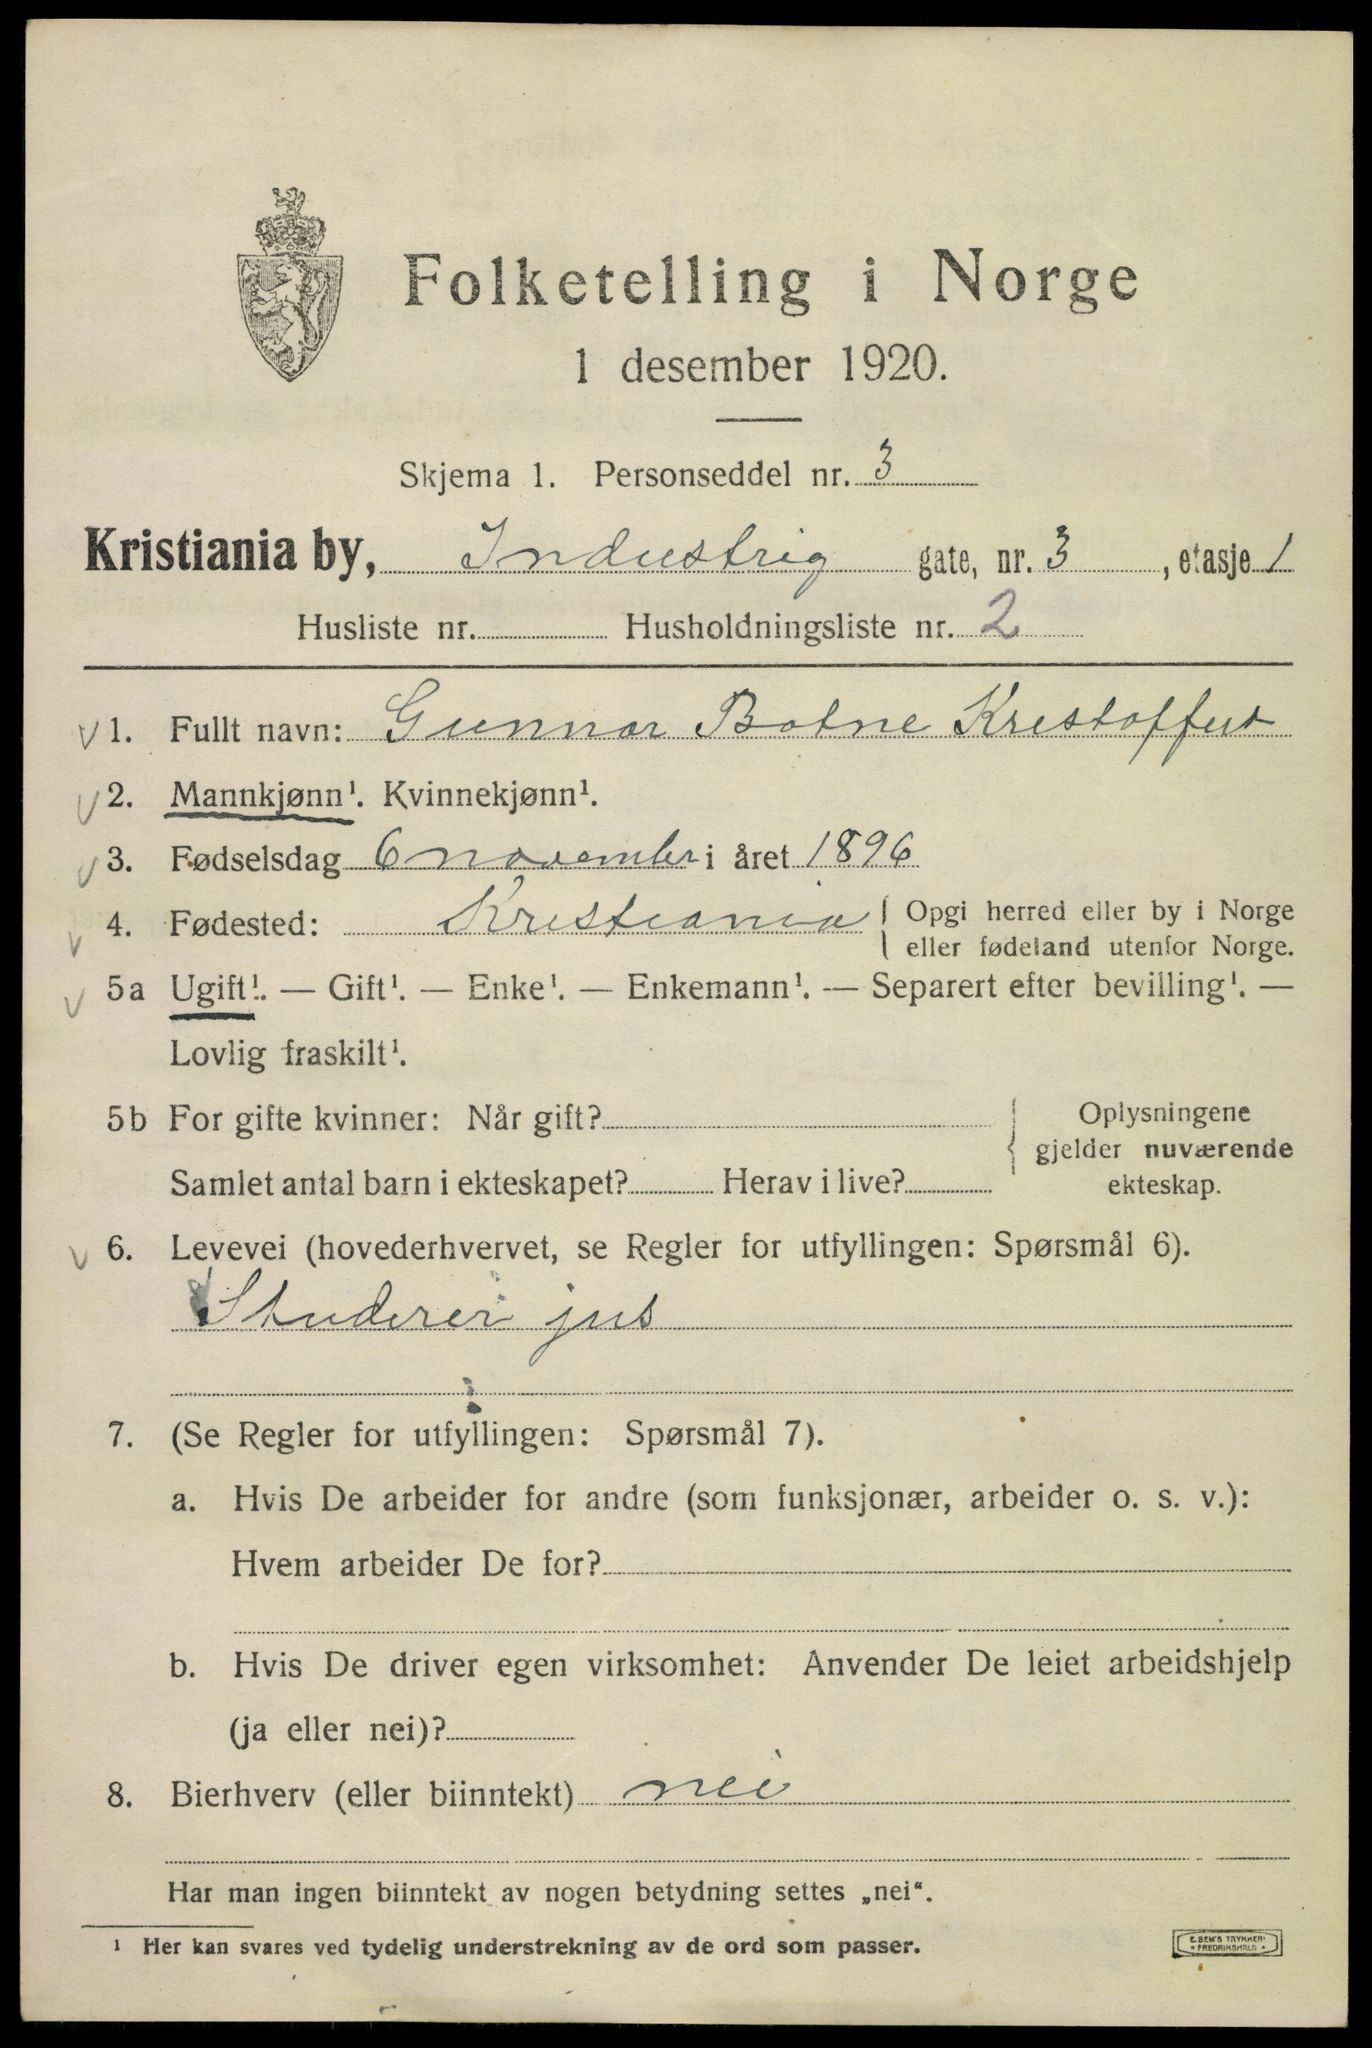 Folketelling i Norge
1 desember 1920.
Skjema 1. Personseddel nr. 3
Kristiania by, Industrig gate, nr. 3, etasje 1
Husliste nr. Husholdningsliste nr. 2
v 1. Fullt navn: Gunnar Botne
v 2. Mannkjønn¹. Kvinnekjønn¹.
v 3. Fødselsdag 6 november i året 1896
v 4. Fødested: Kristiania { Opgi herred eller by i Norge
eller fødeland utenfor Norge.
v 5a Ugift¹. — Gift¹. — Enke¹. — Enkemann¹. — Separert efter bevilling¹. —
Lovlig fraskilt¹.
5b For gifte kvinner: Når gift?
Samlet antal barn i ekteskapet? Herav i live?
{ Oplysningene
gjelder nuværende
ekteskap.
v 6. Levevei (hovederhvervet, se Regler for utfyllingen: Spørsmål 6).
Studerer jus
7. (Se Regler for utfyllingen: Spørsmål 7).
a. Hvis De arbeider for andre (som funksjonær, arbeider o. s. v.):
Hvem arbeider De for?
b. Hvis De driver egen virksomhet: Anvender De leiet arbeidshjelp
(ja eller nei)?
8. Bierhverv (eller biinntekt) nei
Har man ingen biinntekt av nogen betydning settes „nei“.
¹ Her kan svares ved tydelig understrekning av de ord som passer.
E. SEM'S TRYKKERI
• FREDRIKSHALD •